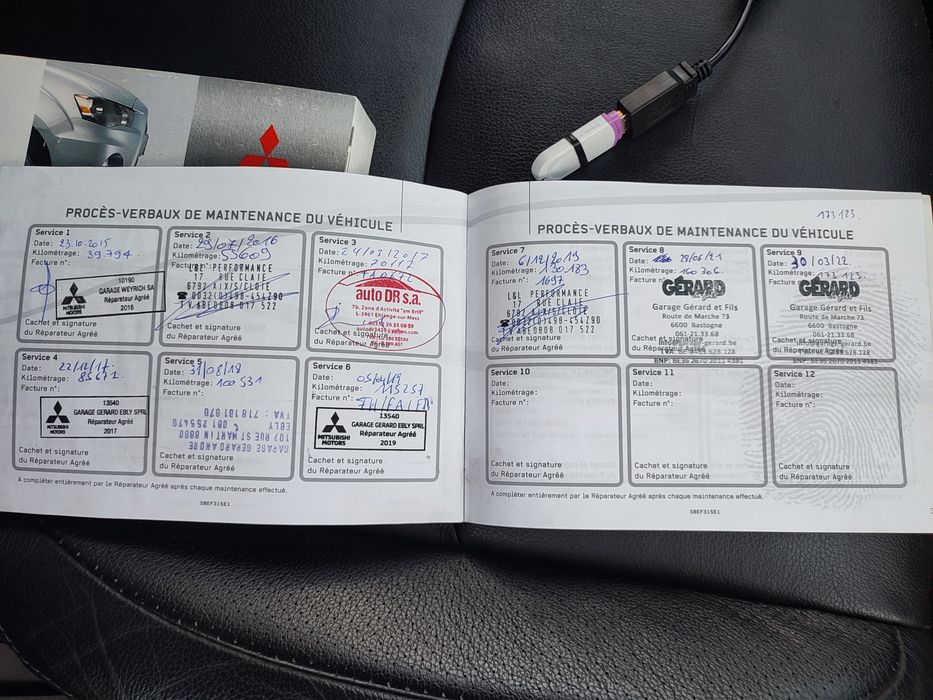 PROCÈS-VERBAUX DE MAINTENANCE DU VÉHICULE
Service 1
Date: 23.10.2015
Kilométrage: 39.794.
Facture n°:
10190
GARAGE WEYRICH SA
Réparateur Agréé
2016
MITSUBISHI MOTORS
Cachet et signature
du Réparateur Agréé
Service 2
Date: 29/07/2016
Kilométrage: 55609
Facture n°:
L&L PERFORMANCE
17 RUE CLAIE
6792 AIX/S/CLOIE
TVA BE0808 017 522
Cachet et signature
du Réparateur Agréé
Service 3
Date: 24/03/2017
Kilométrage:
Facture n°:
auto DR s.a.
7b, Zone d'Activité "am Brill"
L-3961 Ehlange-sur-Mess
Cachet et signature
du Réparateur Agréé
Service 4
Date: 22/12/17.
Kilométrage:
Facture n°:
13540
GARAGE GERARD EBLY SPRL
Réparateur Agréé
2017
MITSUBISHI MOTORS
Cachet et signature
du Réparateur Agréé
Service 5
Date: 31/08/18
Kilométrage: 100 531
Facture n°:
GARAGE GERARD ANDRE
107 RUE ST MARTIN 8860
EBLY
Cachet et signature
du Réparateur Agréé
Service 6
Date:
Kilométrage: 115257
Facture n°:
13540
GARAGE GERARD EBLY SPRL
Réparateur Agréé
2019
MITSUBISHI MOTORS
Cachet et signature
du Réparateur Agréé
A compléter entièrement par le Réparateur Agréé après chaque maintenance effectué.
SBEF315E1
173 123.
PROCÈS-VERBAUX DE MAINTENANCE DU VÉHICULE
Service 7
Date: 6/12/2019
Kilométrage: 130.183
Facture n°: 1697
L&L PERFORMANCE
17 RUE CLAIE
6792 AIX/S/CLOIE
TVA BE0808 017 522
Cachet et signature
du Réparateur Agréé
Service 8
Date:
Kilométrage:
Facture
GÉRARD
Garage Gérard et Fils
Route de Marche 73
6600 Bastogne
061.21.33.68
Cachet et signature
du Réparateur Agréé
Service 9
Date: 30/03/22
Kilométrage: 173 123.
Facture
GÉRARD
Garage Gérard et Fils
Route de Marche 73
6600 Bastogne
061.21.33.68
info@garage-gerard.be
Cachet et signature
du Réparateur Agréé
Service 10
Date:
Kilométrage:
Facture n°:
Cachet et signature
du Réparateur Agréé
Service 11
Date:
Kilométrage:
Facture n°:
Cachet et signature
du Réparateur Agréé
Service 12
Date:
Kilométrage:
Facture n°:
Cachet et signature
du Réparateur Agréé
A compléter entièrement par le Réparateur Agréé après chaque maintenance effectué.
SBEF315E1